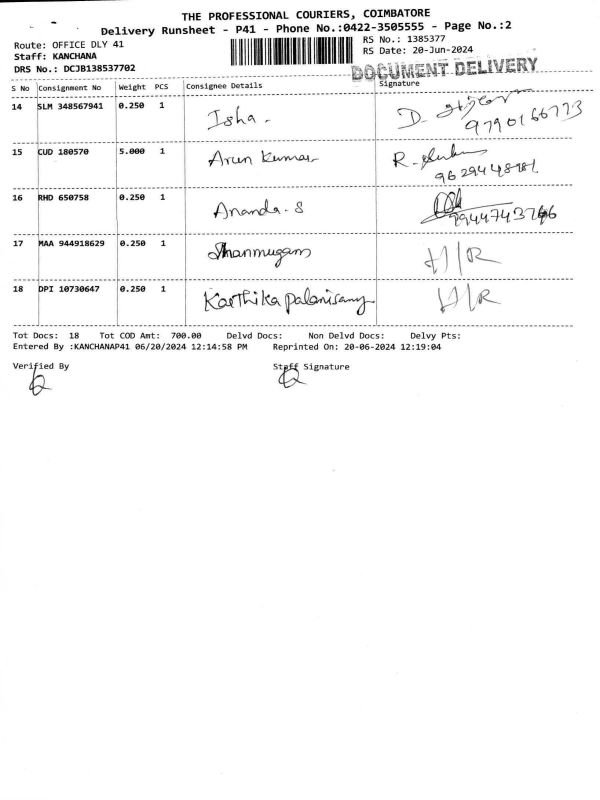 THE PROFESSIONAL COURIERS, COIMBATORE
Delivery Runsheet - P41 - Phone No.:0422-3505555 - Page No.:2
Route: OFFICE DLY 41
Staff: KANCHANA
DRS No.: DCJB138537702
RS No.: 1385377
RS Date: 20-Jun-2024
DOCUMENT DELIVERY
S No Consignment No Weight PCS Consignee Details Signature
14 SLM 348567941 0.250 1 Isha. D.
9790166773
15 CUD 180570 5.000 1 Arun Kumar R.
16 RHD 650758 0.250 1 Ananda.S
17 MAA 944918629 0.250 1 Shanmugam H/R
18 DPI 10730647 0.250 1 Karthika Palanisamy H/R
Tot Docs: 18 Tot COD Amt: 700.00 Delvd Docs: Non Delvd Docs: Delvy Pts:
Entered By :KANCHANAP41 06/20/2024 12:14:58 PM Reprinted On: 20-06-2024 12:19:04
Verified By Staff Signature